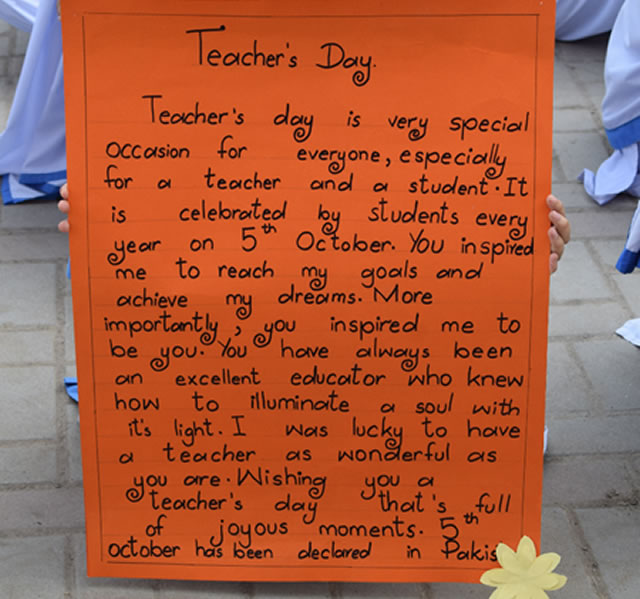 Teacher's Day.
Teacher's day is very special
occasion for everyone, especially
for a teacher and a student. It
is celebrated by students every
year on 5th October. You inspired
me to reach my goals and
achieve my dreams. More
importantly, you inspired me to
be you. You have always been
an excellent educator who knew
how to illuminate a soul with
it's light. I was lucky to have
a teacher as wonderful as
you are. Wishing you a
teacher's day that's full
of joyous moments. 5th
october has been declared in